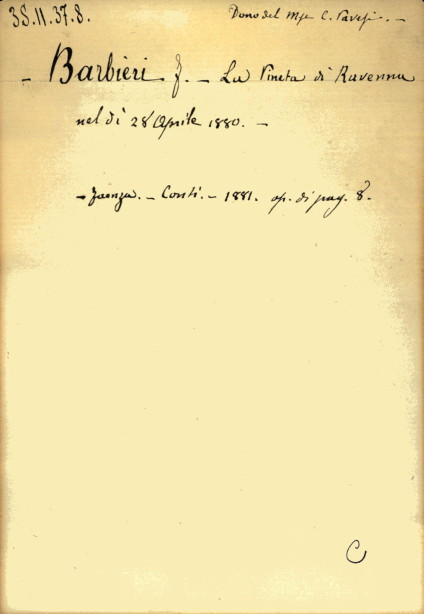 3S.11.37.8. Dono del Mse C. Pavesi. —
– Barbieri F. – La Pineta di Ravenna
nel dì 28 Aprile 1880. –
– Faenza. – Conti. – 1881. op. di pag. 8.
C